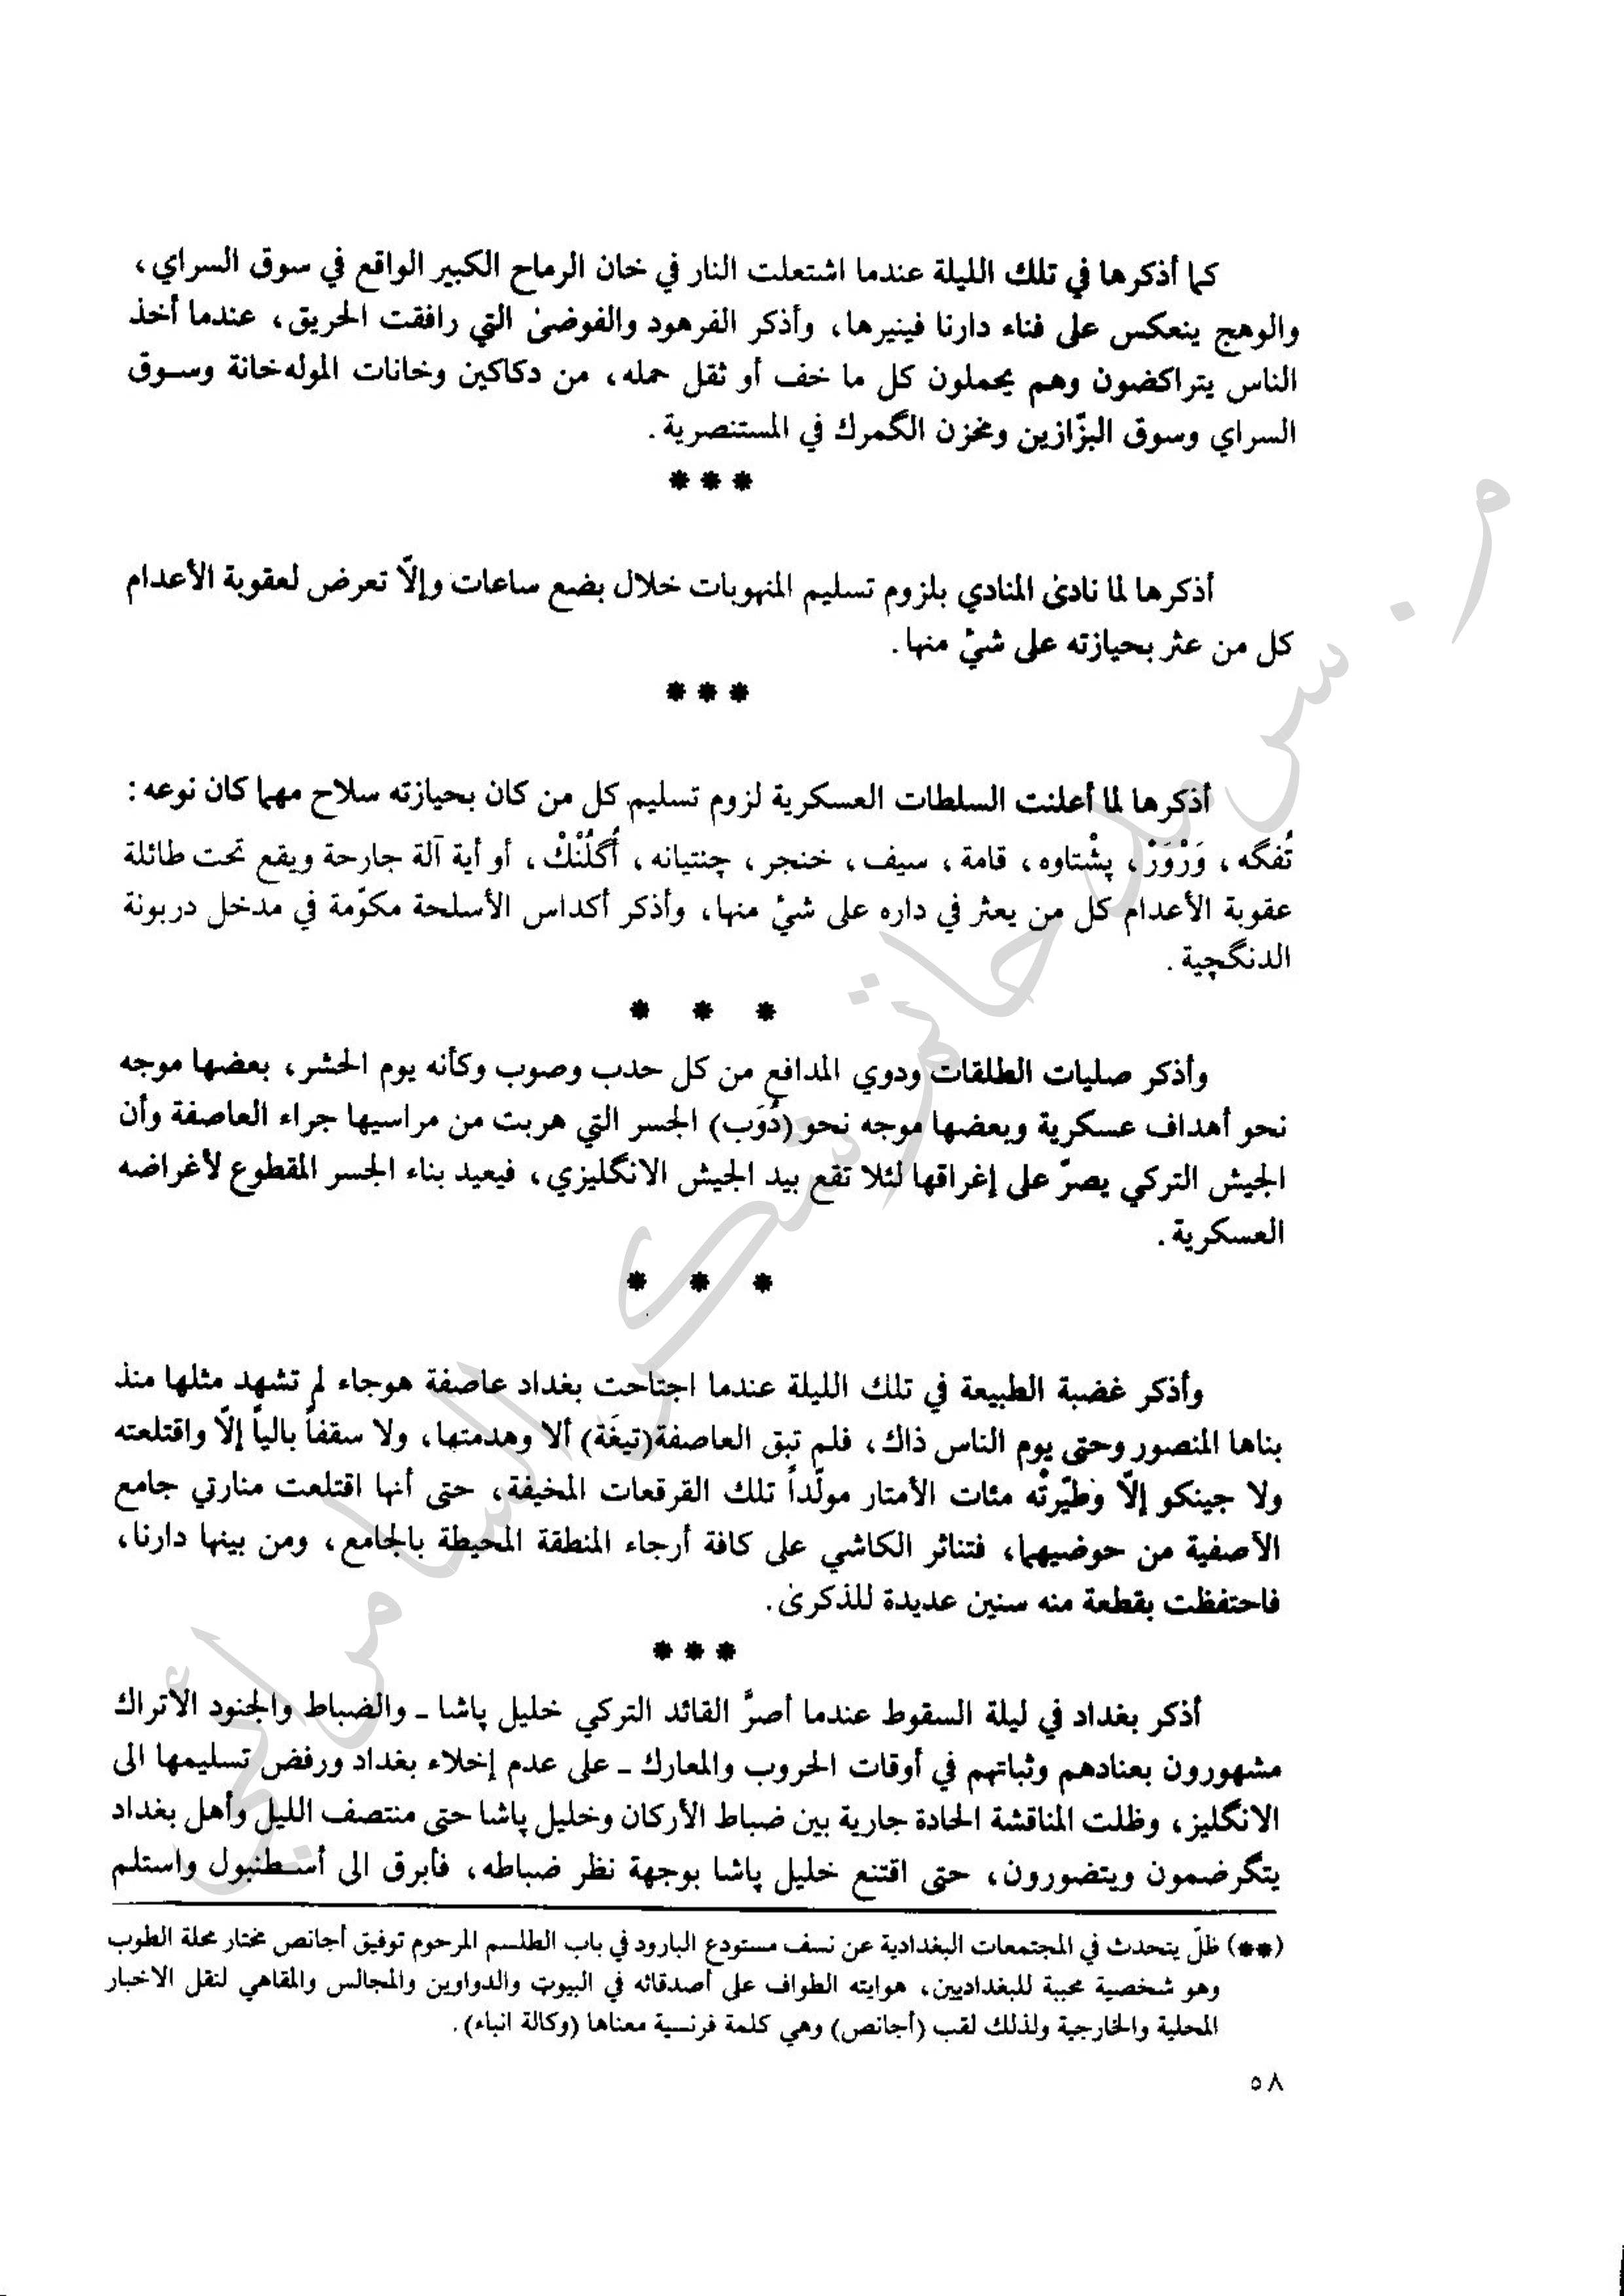 كما أذكرها في تلك الليلة عندما اشتعلت النار في خان الرماح الكبير الواقع في سوق السراي،
والوهج ينعكس على فناء دارنا فينيرها، وأذكر الفرهود والفوضىٰ التي رافقت الحريق، عندما أخذ
الناس يتراكضون وهم يحملون كل ما خف أو ثقل حمله، من دكاكين وخانات المولەخانة وسوق
السراي وسوق البزّازين ومخزن الگمرك في المستنصرية.
***
أذكرها لما نادىٰ المنادي بلزوم تسليم المنهوبات خلال بضع ساعات وإلّا تعرض لعقوبة الأعدام
كل من عثر بحيازته على شيْ منها.
***
أذكرها لما أعلنت السلطات العسكرية لزوم تسليم كل من كان بحيازته سلاح مهما كان نوعه:
تُفگه، وَرْوَرْ، پشْتاوه، قامة، سيف، خنجر، چنتيانه، أُگلُنْكْ، أو أية آلة جارحة ويقع تحت طائلة
عقوبة الأعدام كل من يعثر في داره على شيْ منها، وأذكر أكداس الأسلحة مكوّمة في مدخل دربونة
الدنگچية.
* * *
وأذكر صليات الطلقات ودوي المدافع من كل حدب وصوب وكأنه يوم الحشر، بعضها موجه
نحو أهداف عسكرية وبعضها موجه نحو (دُوَب) الجسر التي هربت من مراسيها جراء العاصفة وأن
الجيش التركي يصرّ على إغراقها لئلا تقع بيد الجيش الانگليزي، فيعيد بناء الجسر المقطوع لأغراضه
العسكرية.
* * *
وأذكر غضبة الطبيعة في تلك الليلة عندما اجتاحت بغداد عاصفة هوجاء لم تشهد مثلها منذ
بناها المنصور وحتى يوم الناس ذاك، فلم تبق العاصفة(تيغَة) ألا وهدمتها، ولا سقفاً بالياً إلّا واقتلعته
ولا جينكو إلّا وطيّرتْه مئات الأمتار مولّداً تلك القرقعات المخيفة، حتى أنها اقتلعت منارتي جامع
الآصفية من حوضيهما، فتناثر الكاشي على كافة أرجاء المنطقة المحيطة بالجامع، ومن بينها دارنا،
فاحتفظت بقطعة منه سنين عديدة للذكرىٰ.
***
أذكر بغداد في ليلة السقوط عندما أصرَّ القائد التركي خليل پاشا ـ والضباط والجنود الأتراك
مشهورون بعنادهم وثباتهم في أوقات الحروب والمعارك ـ على عدم إخلاء بغداد ورفض تسليمها الى
الانگليز، وظلت المناقشة الحادة جارية بين ضباط الأركان وخليل پاشا حتى منتصف الليل وأهل بغداد
يتگرضمون ويتضورون، حتى اقتنع خليل پاشا بوجهة نظر ضباطه، فأبرق الى أسطنبول واستلم
(**) ظلّ يتحدث في المجتمعات البغدادية عن نسف مستودع البارود في باب الطلسم المرحوم توفيق أجانص مختار محلة الطوب
وهو شخصية محببة للبغداديين، هوايته الطواف على أصدقائه في البيوت والدواوين والمجالس والمقاهي لنقل الاخبار
المحلية والخارجية ولذلك لقب (أجانص) وهي كلمة فرنسية معناها (وكالة انباء).
٥٨